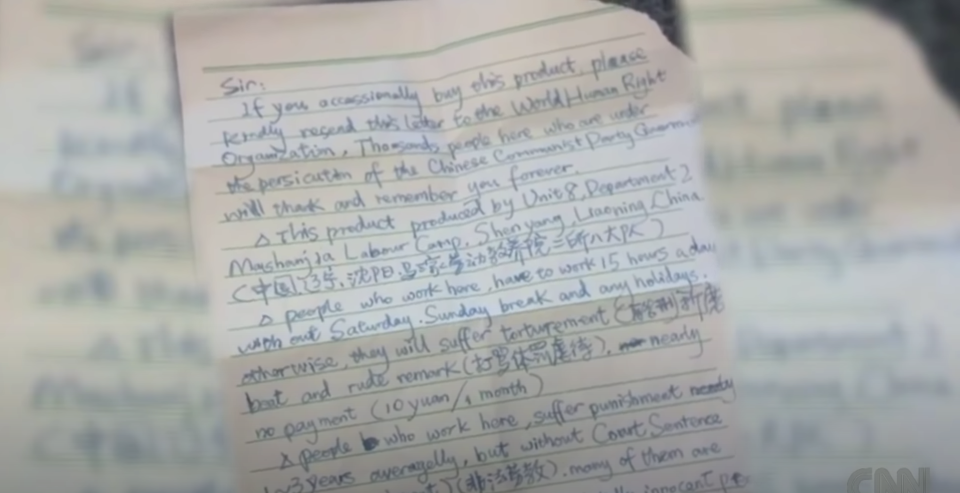 Sir:
If you occassionally buy this product, please
kindly resend this letter to the World Human Right
Organization. Thousands people here who are under
the persicution of the Chinese Communist Party Government
will thank and remember you forever.
△ This product produced by Unit 8, Department 2
Mashanjia Labour Camp, Shenyang, Liaoning, China
(中国, 辽宁, 沈阳, 马三家劳动教养院二所八大队)
△ people who work here, have to work 15 hours a day
with out Saturday, Sunday break and any holidays.
otherwise, they will suffer torturement (酷刑折磨
beat and rude remark (打骂体罚虐待). nearly
no payment (10 yuan/1 month)
△ people who work here, suffer punishment
1~3 years averagelly, but without Court Sentence
(非法劳教). many of them are
innocent
CNN